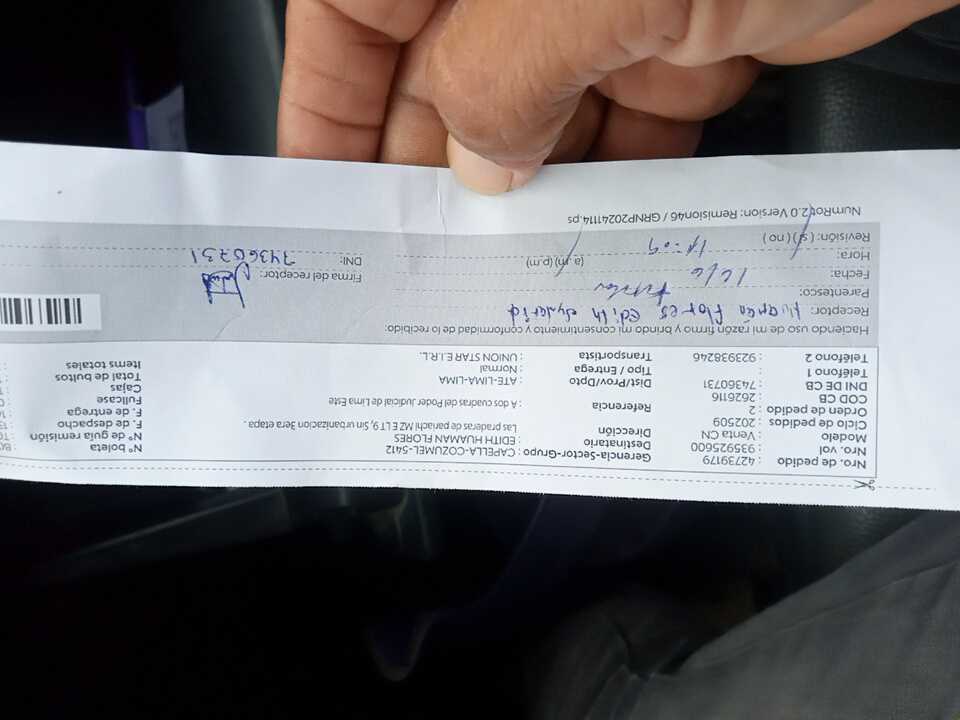 Nro. de pedido : 42739179 Gerencia-Sector-Grupo : CAPELLA-COZUMEL-5412 N° boleta
Nro. vol : 935925600 Destinatario : EDITH HUAMAN FLORES N° de guía remisión
Modelo : Venta CN Dirección Las praderas de panachi MZ E LT 9, Sin urbanizacion 3era etapa. F. de despacho
Ciclo de pedidos : 202509 F. de entrega
Orden de pedido : 2 Referencia : A dos cuadras del Poder Judicial de Lima Este Fullcase
COD CB : 2626116 Cajas
DNI DE CB : 74360731 Dist/Prov/Dpto : ATE-LIMA-LIMA Total de bultos
Teléfono 1 : Tipo / Entrega : Normal Items totales
Teléfono 2 : 923938246 Transportista : UNION STAR E.I.R.L.
Haciendo uso de mi razón firmo y brindo mi consentimiento y conformidad de lo recibido:
Receptor: Huaman Flores Edith
Parentesco: Titular
Firma del receptor:
Fecha: 16/6
Hora: (a.m) (p.m) DNI: 74360731
Revisión: ( si ) ( no )
NumRot:2.0 Version: Remision46 / GRNP20241114.ps